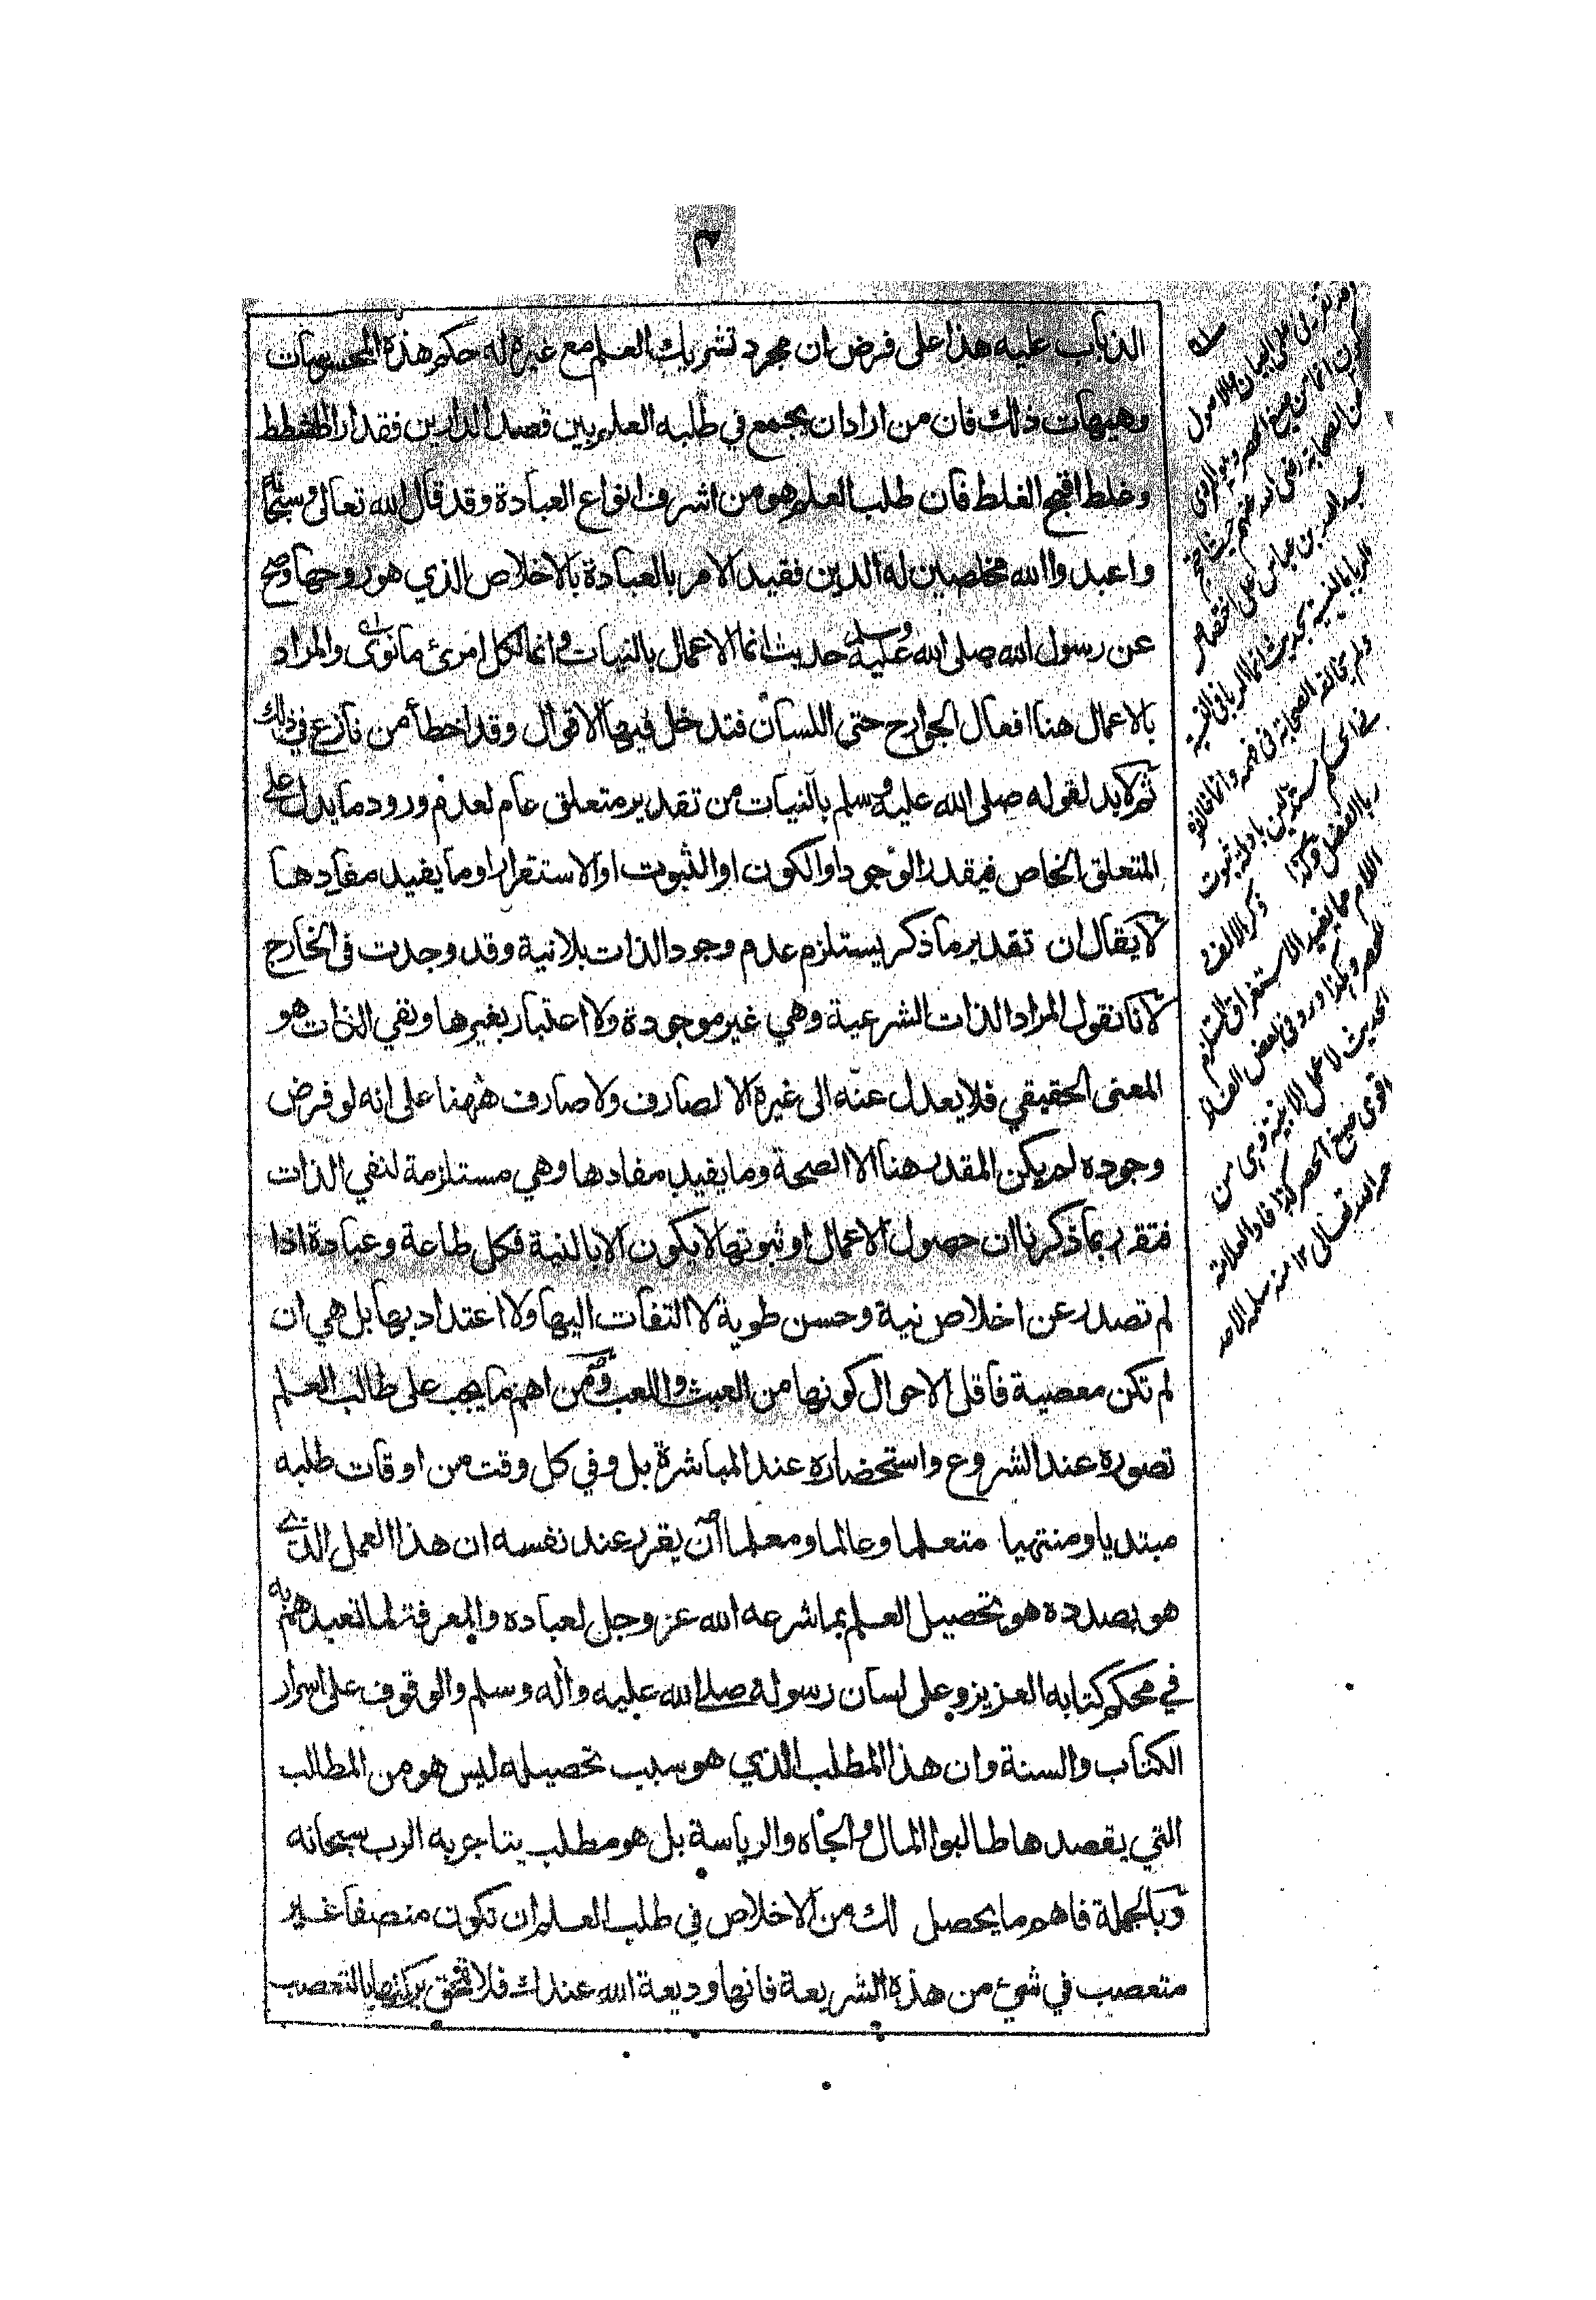 ٣
الذباب عليه هذا على فرض ان مجرد تشريك العلم مع غيره له حكم هذه المحسوسات
وهيهات ذلك فان من اراد ان يجمع في طلبه العلم بين قصد الدارين فقد اراد الشطط
وغلط اقبح الغلط فان طلب العلم هو من اشرف انواع العبادة وقد قال الله تعالى وسبحانه
واعبدوا الله مخلصين له الدين فقيد الامر بالعبادة بالاخلاص الذي هو روحها وصح
عن رسول الله صلى الله عليه وسلم حديث انما الاعمال بالنيات وانما لكل امرئ ما نوى والمراد
بالاعمال هنا افعال الجوارح حتى اللسان فتدخل فيها الاقوال وقد اخطأ من نازع في ذلك
ثم لابد لقوله صلى الله عليه وسلم بالنيات من تقدير متعلق عام لعدم ورود ما يدل على
المتعلق الخاص فيقدر الوجود او الكون او الثبوت او الاستقرار او ما يفيد مفادها
لا يقال ان تقدير ما ذكر يستلزم عدم وجود الذات بلا نية وقد وجدت في الخارج
لانا نقول المراد الذات الشرعية وهي غير موجودة ولا اعتبار بغيرها ونفي الذات هو
المعنى الحقيقي فلا يعدل عنه الى غيره الا لصارف ولا صارف ههنا على انه لو فرض
وجوده لم يكن المقدر هنا الا الصحة وما يفيد مفادها وهي مستلزمة لنفي الذات
فتقرر بما ذكرنا ان حصول الاعمال او ثبوتها لا يكون الا بالنية فكل طاعة وعبادة اذا
لم تصدر عن اخلاص نية وحسن طوية لا التفات اليها ولا اعتداد بها بل هي ان
لم تكن معصية فاقل الاحوال كونها من العبث واللعب ومن اهم ما يجب على طالب العلم
تصوره عند الشروع واستحضاره عند المباشرة بل وفي كل وقت من اوقات طلبه
مبتديا ومنتهيا متعلما وعالما ومعلما ان يقرر عند نفسه ان هذا العمل الذي
هو بصدده هو تحصيل العلم بما شرعه الله عز وجل لعباده والمعرفة لما تعبدهم به
في محكم كتابه العزيز وعلى لسان رسوله صلى الله عليه واله وسلم والوقوف على اسرار
الكتاب والسنة وان هذا المطلب الذي هو سبب تحصيله ليس هو من المطالب
التي يقصدها طالبوا المال والجاه والرياسة بل هو مطلب يتاجر به الرب سبحانه
وبالجملة فاهم ما يحصل لك من الاخلاص في طلب العلم ان تكون منصفا غير
متعصب في شيء من هذه الشريعة فانها وديعة الله عندك فلا تمحق بركتها بالتعصب
من الصحابة رضي الله عنهم حيث احتج
عبد الله بن عباس على اختصاص
الربا بالنسية بحديث انما الربا في النسية
ولم يخالفه الصحابة في فهمه وانما خالفوه
ربا الفضل وكذا ذكر الالف و
اللام مما يفيد الاستغراق المستلزم
للحصر وهكذا ورد في بعض الفاظ
الحديث لا عمل الا بنية وهي من
اقوى صيغ الحصر كذا افاد العلامة